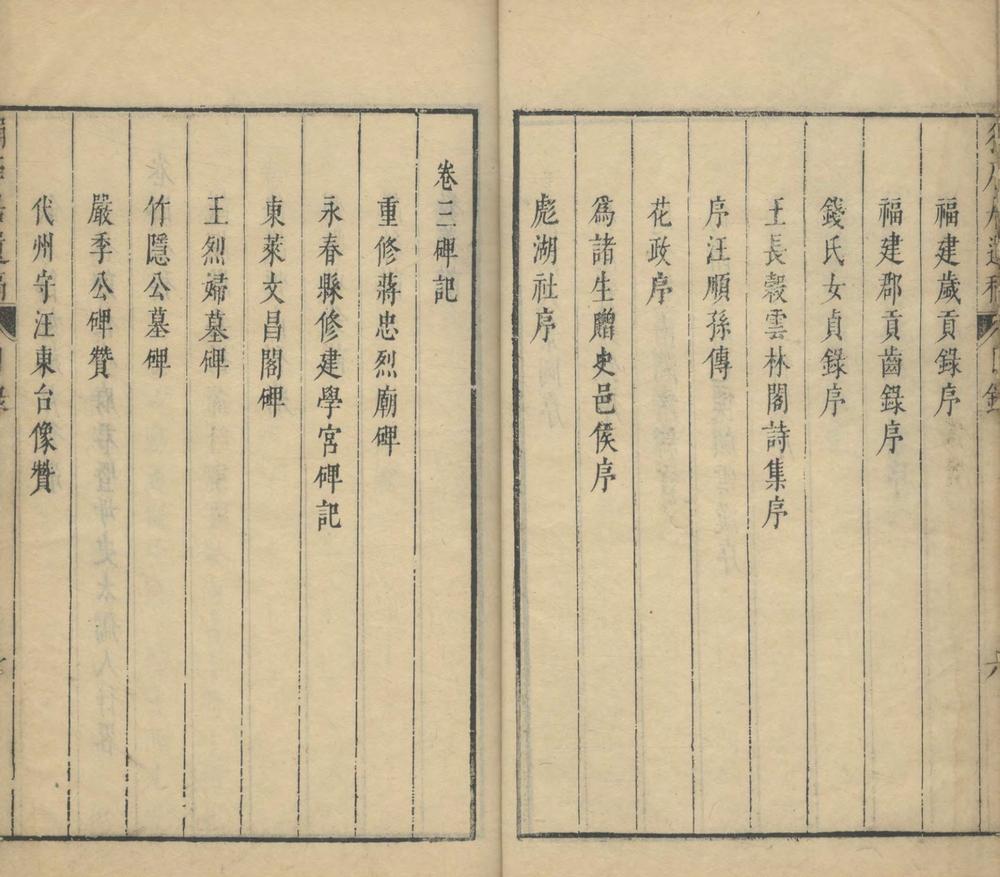 福建歲貢錄序
福建郡貢齒錄序
錢氏女貞錄序
王長穀雲林閣詩集序
序汪順孫傳
花政序
為諸生贈史邑侯序
彪湖社序
卷三碑記
重修蔣忠烈廟碑
永春縣修建學宮碑記
東萊文昌閣碑
王烈婦墓碑
竹隱公墓碑
嚴季公碑贊
代州守汪東台像贊